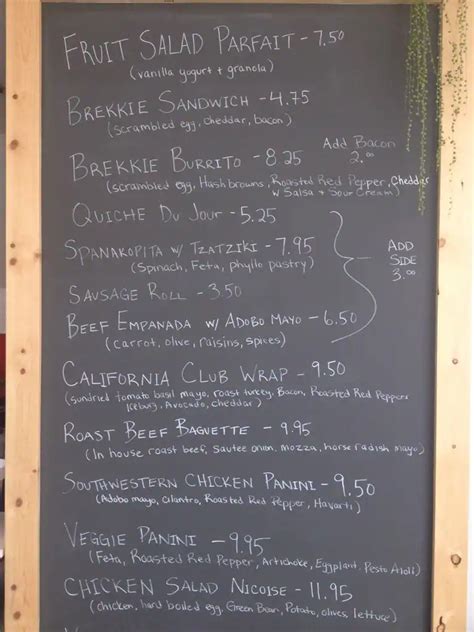 FRUIT SALAD PARFAIT - 7.50
(vanilla yogurt + granola)
BREKKIE SANDWICH - 4.75
(scrambled egg, cheddar, bacon)
Add Bacon
2.00
BREKKIE BURRITO - 8.25
(scrambled egg, Hashbrowns, Roasted Red Pepper, Cheddar
w Salsa + Sour Cream)
QUICHE DU JOUR - 5.25
SPANAKOPITA W/ TZATZIKI - 7.95
(Spinach, Feta, phyllo pastry)
ADD
SIDE
3.00
SAUSAGE ROLL - 3.50
BEEF EMPANADA W/ ADOBO MAYO - 6.50
(carrot, olive, raisins, spices)
CALIFORNIA CLUB WRAP - 9.50
(sundried tomato basil mayo, roast turkey, Bacon, Roasted Red Peppers
Iceburg, Avocado, cheddar)
ROAST BEEF BAGUETTE - 9.95
(In house roast beef, Sautee onion, mozza, horse radish mayo)
SOUTHWESTERN CHICKEN PANINI - 9.50
(Adobo mayo, cilantro, Roasted Red Pepper, Havarti)
VEGGIE PANINI - 9.95
(Feta, Roasted Red Pepper, Artichoke, Eggplant, Pesto Aioli)
CHICKEN SALAD NICOISE - 11.95
(chicken, hard boiled egg, Green Bean, Potato, olives, lettuce)